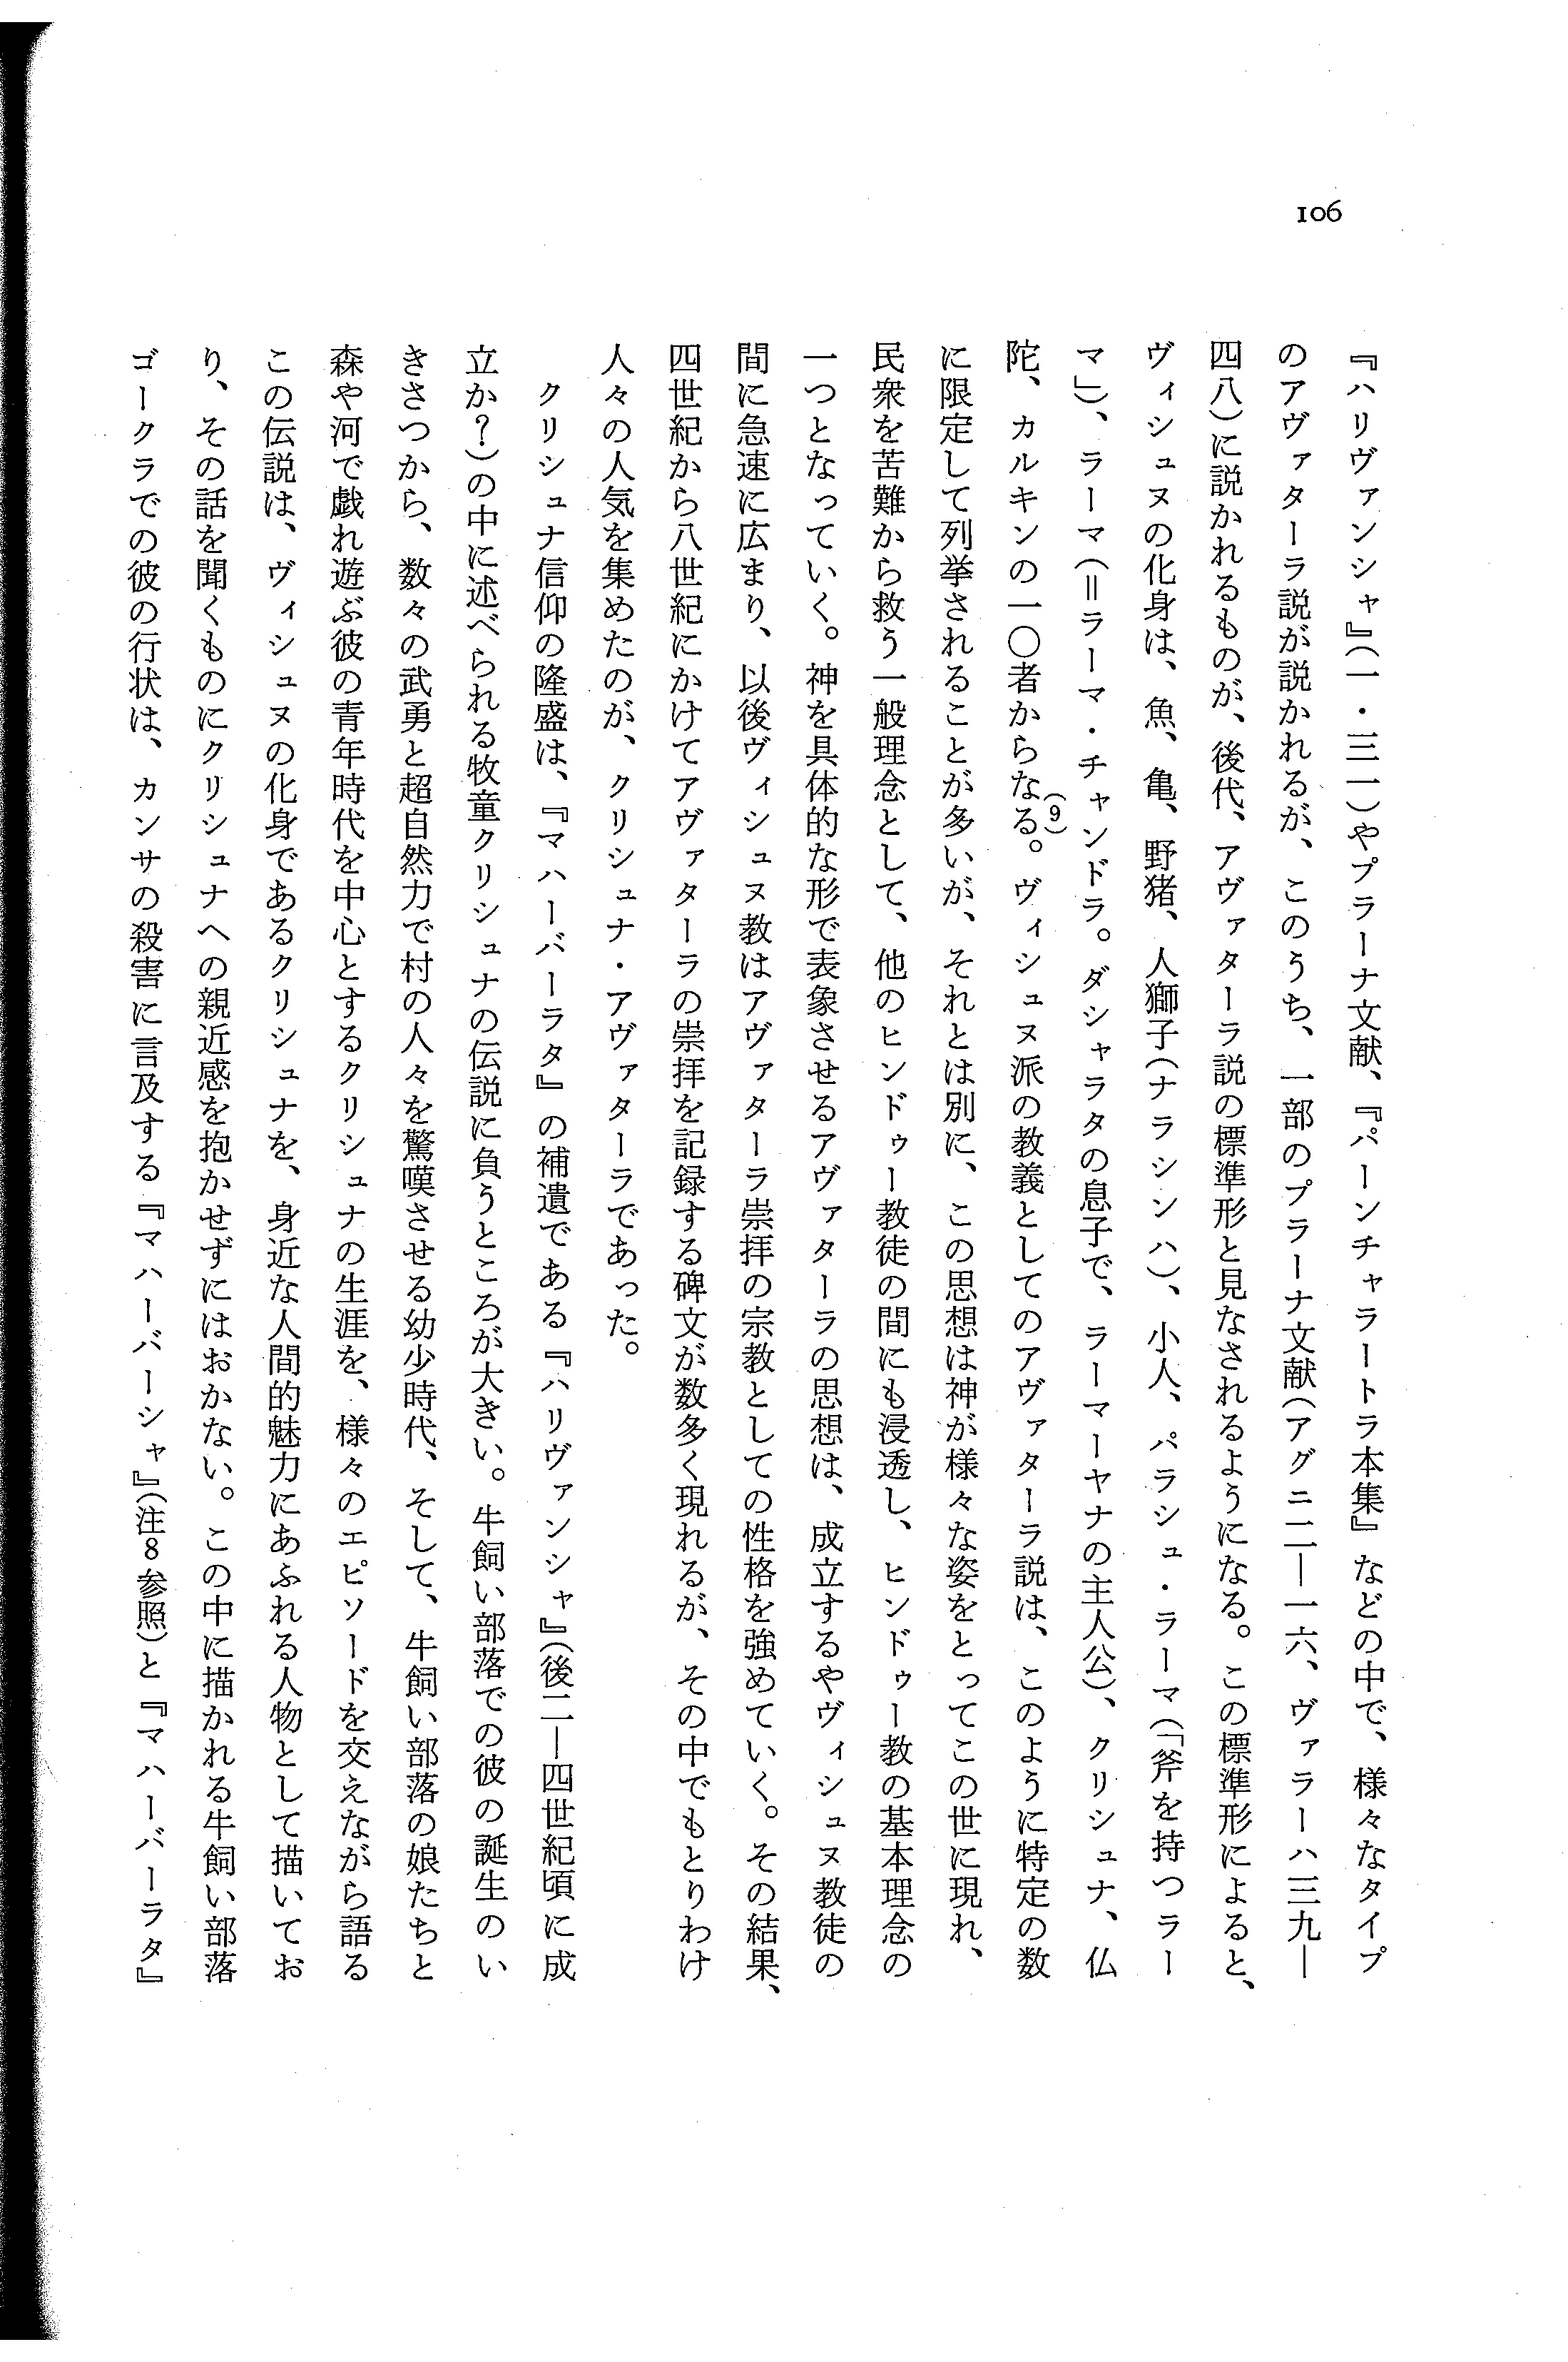 106
『ハリヴァンシャ』(一・三一)やプラーナ文献、『パーンチャラートラ本集』などの中で、様々なタイプ
のアヴァターラ説が説かれるが、このうち、一部のプラーナ文献(アグニ二―一六、ヴァラーハ三九―
四八)に説かれるものが、後代、アヴァターラ説の標準形と見なされるようになる。この標準形によると、
ヴィシュヌの化身は、魚、亀、野猪、人獅子(ナラシンハ)、小人、パラシュ・ラーマ(「斧を持つラー
マ」)、ラーマ(=ラーマ・チャンドラ。ダシャラタの息子で、ラーマーヤナの主人公)、クリシュナ、仏
陀、カルキンの一〇者からなる(9)。ヴィシュヌ派の教義としてのアヴァターラ説は、このように特定の数
に限定して列挙されることが多いが、それとは別に、この思想は神が様々な姿をとってこの世に現れ、
民衆を苦難から救う一般理念として、他のヒンドゥー教徒の間にも浸透し、ヒンドゥー教の基本理念の
一つとなっていく。神を具体的な形で表象させるアヴァターラの思想は、成立するやヴィシュヌ教徒の
間に急速に広まり、以後ヴィシュヌ教はアヴァターラ崇拝の宗教としての性格を強めていく。その結果、
四世紀から八世紀にかけてアヴァターラの崇拝を記録する碑文が数多く現れるが、その中でもとりわけ
人々の人気を集めたのが、クリシュナ・アヴァターラであった。
クリシュナ信仰の隆盛は、『マハーバーラタ』の補遺である『ハリヴァンシャ』(後二―四世紀頃に成
立か?)の中に述べられる牧童クリシュナの伝説に負うところが大きい。牛飼い部落での彼の誕生のい
きさつから、数々の武勇と超自然力で村の人々を驚嘆させる幼少時代、そして、牛飼い部落の娘たちと
森や河で戯れ遊ぶ彼の青年時代を中心とするクリシュナの生涯を、様々のエピソードを交えながら語る
この伝説は、ヴィシュヌの化身であるクリシュナを、身近な人間的魅力にあふれる人物として描いてお
り、その話を聞くものにクリシュナへの親近感を抱かせずにはおかない。この中に描かれる牛飼い部落
ゴークラでの彼の行状は、カンサの殺害に言及する『マハーバーシャ』(注8参照)と『マハーバーラタ』